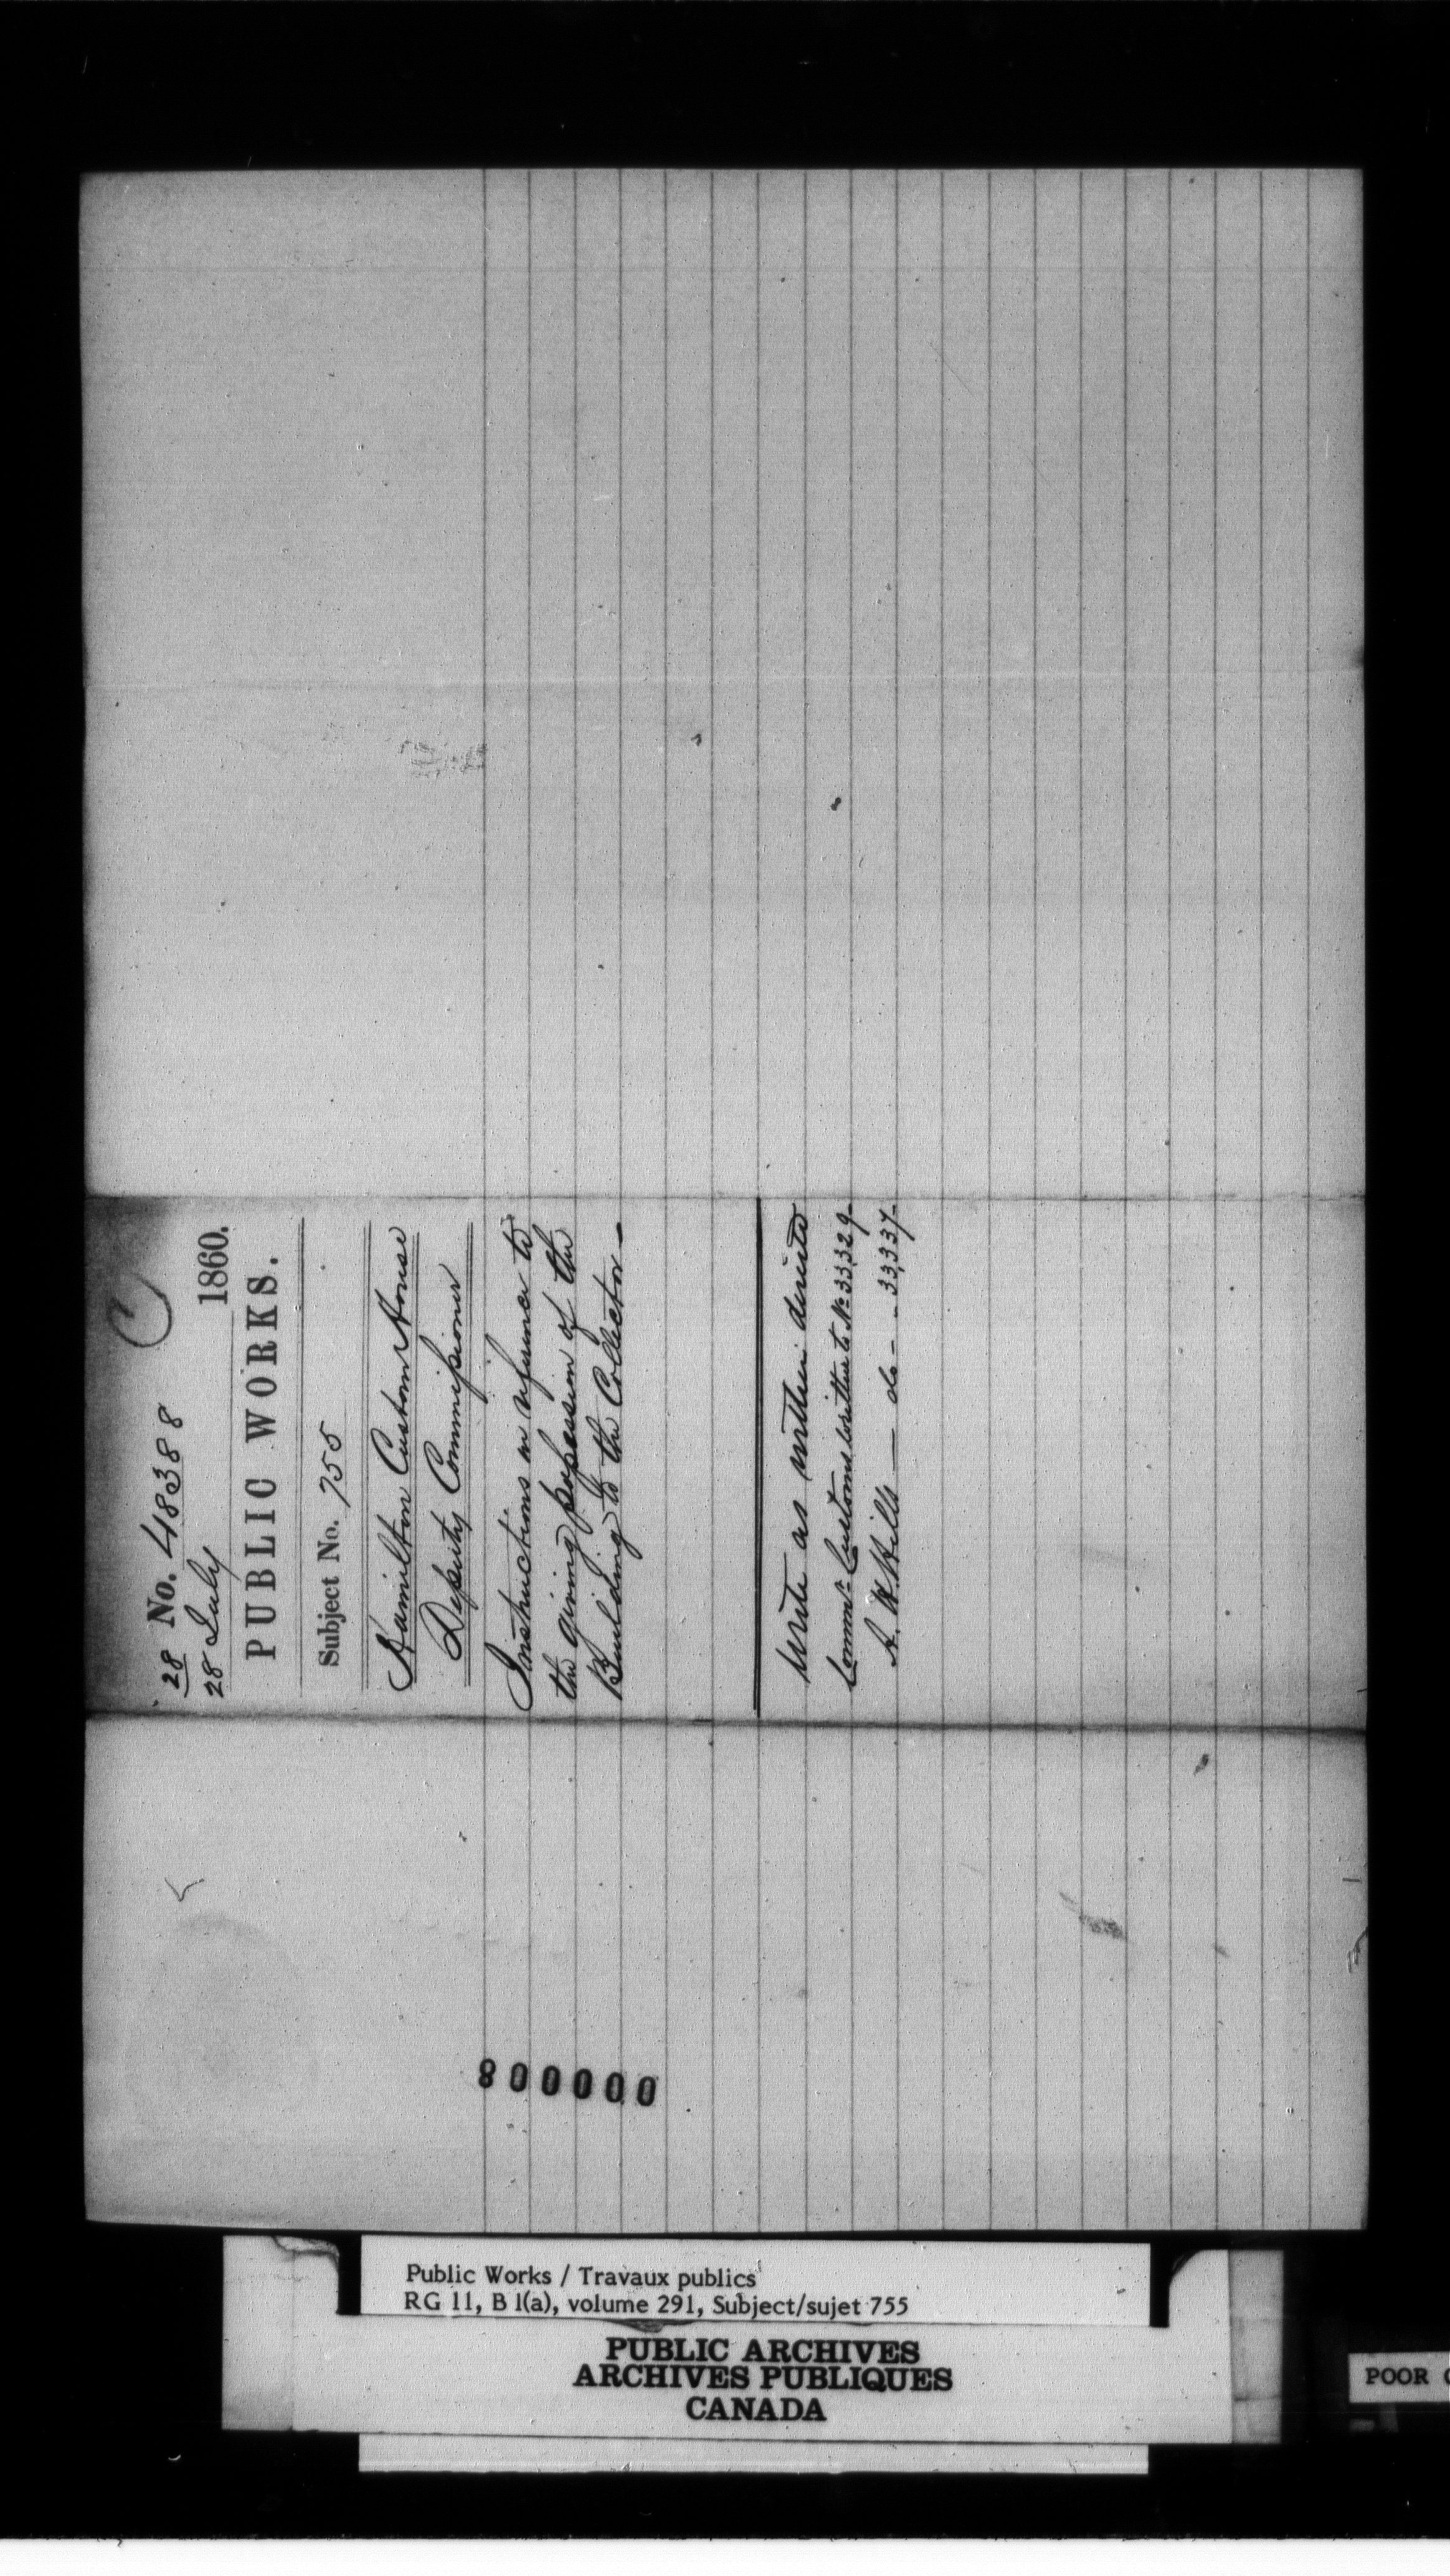 28 No. 48388
28 July 1860.
PUBLIC WORKS.
Subject No. 755
Hamilton Custom House
Deputy Commissioner
Instructions in reference to
the giving possession of the
Building to the Collector —
Write as within directed
Commr. Customs written to No. 33,329-
A. W. Hills — do - - 33,337-
000008
Public Works / Travaux publics
RG 11, B 1(a), volume 291, Subject/sujet 755
PUBLIC ARCHIVES
ARCHIVES PUBLIQUES
CANADA
POOR